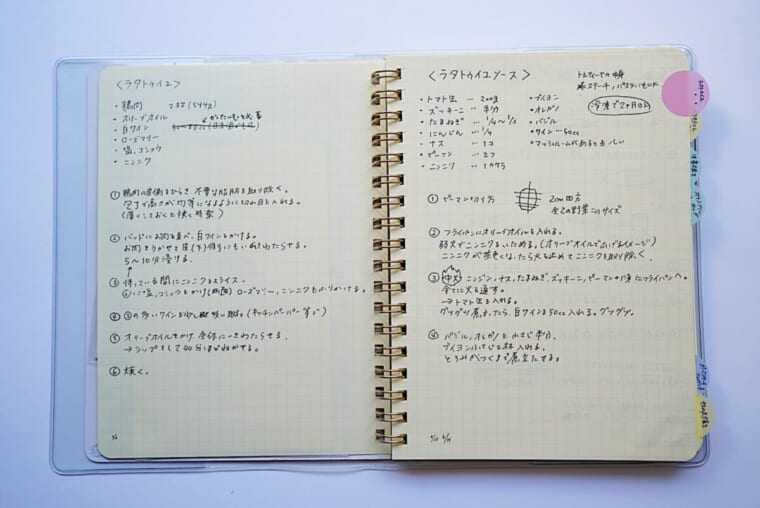 〈ラタトゥイユ〉
・鶏肉 2枚(544g)
・オリーブオイル
・白ワイン
・ローズマリー
・塩、コショウ
・ニンニク
① 鶏肉の両側をひらき、不要な脂肪を取り除く。
包丁で高さが均等になるように切れ目を入れる。
(薄くしておくと焼く時楽)
② バットにお肉を並べ、白ワインをかける。
お肉をうかせて後(下)側にもいきわたらせる。
5〜10分漬ける。
③ 待っている間にニンニクをスライス。
②に塩、コショウをかけ(両面)ローズマリー、ニンニクもふりかける。
④ ③の多いワインを少し軽く吸い取る。(キッチンペーパー等で)
⑤ オリーブオイルをかけ、全体にいきわたらせる。
→ラップをして40分ほどねかせる。
⑥ 焼く。
〈ラタトゥイユソース〉
・トマト缶 … 200g
・ズッキーニ … 半分
・たまねぎ … 1/4〜1/3
・にんじん … 1/4
・ナス … 1コ
・ピーマン … 2コ
・ニンニク … 1カケラ
・ブイヨン
・オレガノ
・バジル
・ワイン … 50cc
・マッシュルームがあるとおいしい
冷凍で2ヶ月OK
① ピーマン切り方
2cm四方
全ての野菜このサイズ
② フライパンにオリーブオイルを入れる。
弱火でニンニクをいためる。(オリーブオイルで広げるイメージ)
ニンニクが茶色くなったら火を止めてニンニクを取り除く。
③ 中火 ニンジン、ナス、たまねぎ、ズッキーニ、ピーマンの順にフライパンへ。
全てに火を通す。
→トマト缶を入れる。
グツグツ煮立ったら、白ワインを50cc入れる。グツグツ。
④ バジル、オレガノを小さじ半分、
ブイヨン小さじ2杯入れる。
とろみがつくまで煮立たせる。